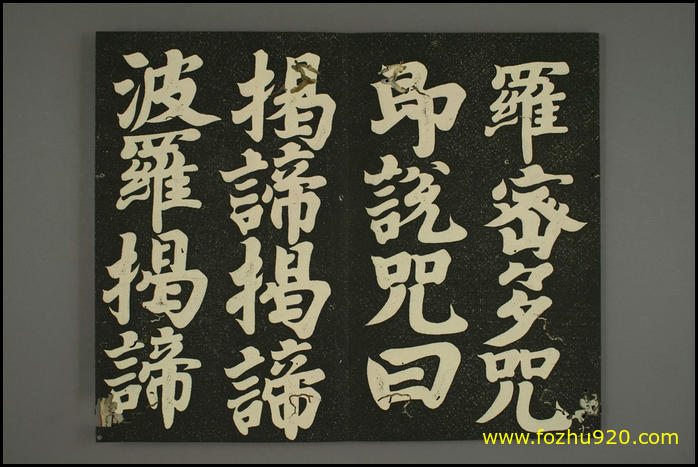 羅密多咒
即說咒曰
揭諦揭諦
波羅揭諦
www.fozhu920.com